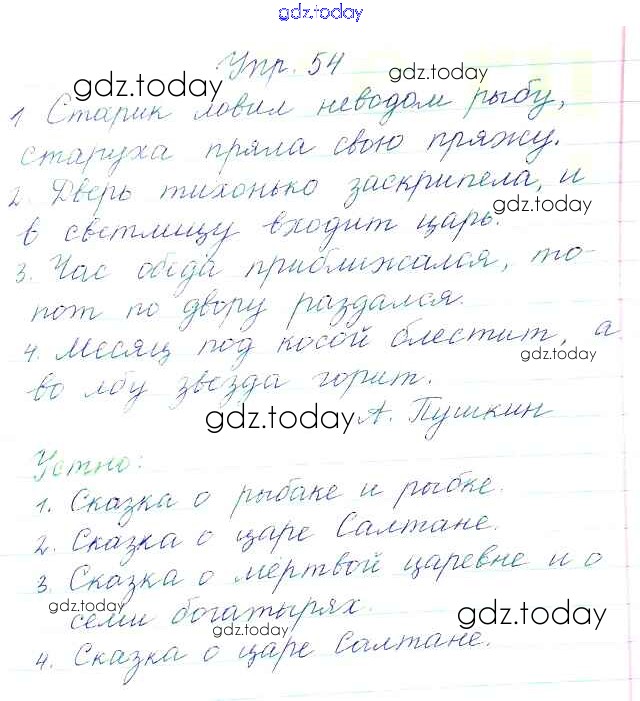 gdz.today
Упр. 54
gdz.today
gdz.today
1 Старик ловил неводом рыбу,
старуха пряла свою пряжу.
2. Дверь тихонько заскрипела, и
gdz.today
в светлицу входит царь.
3. Час обеда приближался, то-
пот по двору раздался.
4. Месяц под косой блестит, а
gdz.today
во лбу звезда горит.
gdz.today
А. Пушкин
Устно:
1. Сказка о рыбаке и рыбке.
2. Сказка о царе Салтане.
3. Сказка о мёртвой царевне и о
gdz.today
семи богатырях.
gdz.today
gdz.today
4. Сказка о царе Салтане.